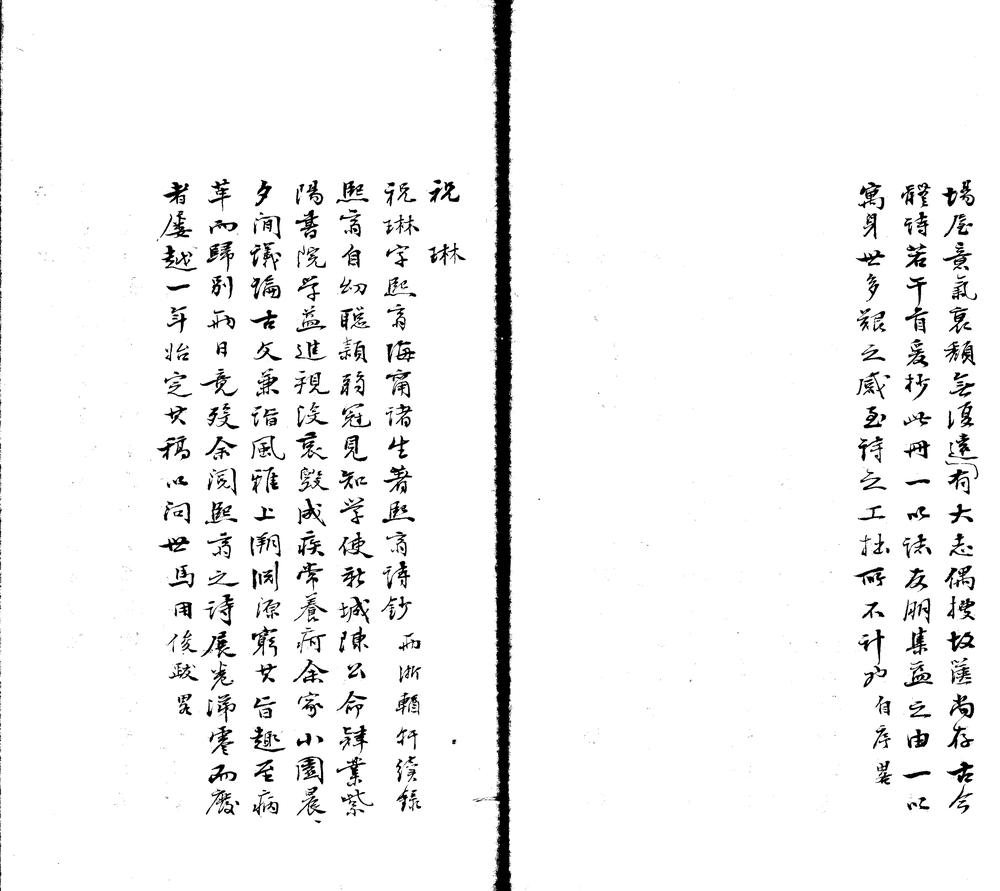 場屋意氣衰頹無復遠有大志偶搜故篋尚存古今
體詩若干首爰抄此冊一以誌友朋集益之由一以
寓身世多艱之感至詩之工拙所不計也自序畧
祝琳
祝琳字熙齋海甯諸生著熙齋詩鈔兩浙輶軒續錄
熙齋自幼聰穎弱冠見知學使新城陳公命肄業紫
陽書院学益進親沒哀毀成疾常養疴余家小園晨
夕閒議論古文兼諧風雅上溯淵源窮其旨趣至病
革而歸別兩日竟歿余閱熙齋之詩展卷涕零而廢
者屢越一年始定其稿以問世馬用俊跋畧